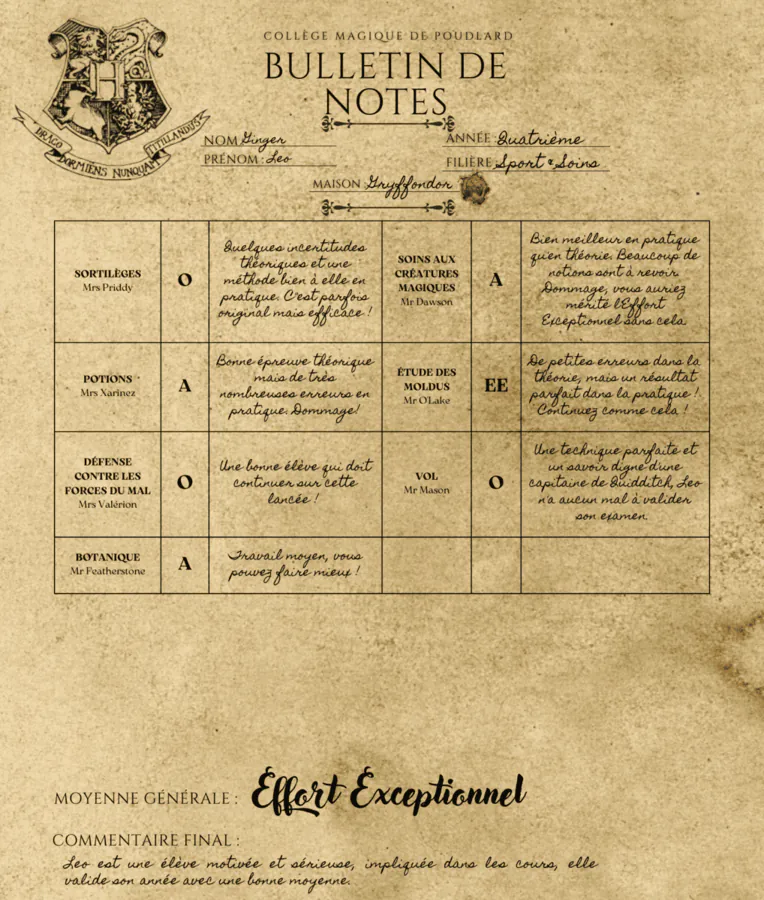 COLLÈGE MAGIQUE DE POUDLARD
BULLETIN DE
NOTES
DRACO
DORMIENS NUNQUAM
TITILLANDUS
NOM Ginger
PRÉNOM : Leo
ANNÉE Quatrième
FILIÈRE Sport & Soins
MAISON Gryffondor
SORTILÈGES
Mrs Priddy
O
Quelques incertitudes
théoriques et une
méthode bien à elle en
pratique. C'est parfois
original mais efficace !
SOINS AUX
CRÉATURES
MAGIQUES
Mr Dawson
A
Bien meilleur en pratique
qu'en théorie. Beaucoup de
notions sont à revoir.
Dommage, vous auriez
mérité l'Effort
Exceptionnel sans cela.
POTIONS
Mrs Xarinez
A
Bonne épreuve théorique
mais de très
nombreuses erreurs en
pratique. Dommage!
ÉTUDE DES
MOLDUS
Mr O'Lake
EE
De petites erreurs dans la
théorie, mais un résultat
parfait dans la pratique !
Continuez comme cela !
DÉFENSE
CONTRE LES
FORCES DU MAL
Mrs Valérion
O
Une bonne élève qui doit
continuer sur cette
lancée !
VOL
Mr Mason
O
Une technique parfaite et
un savoir digne d'une
capitaine de Quidditch, Leo
n'a aucun mal à valider
son examen.
BOTANIQUE
Mr Featherstone
A
Travail moyen, vous
pouvez faire mieux !
MOYENNE GÉNÉRALE : Effort Exceptionnel
COMMENTAIRE FINAL :
Leo est une élève motivée et sérieuse, impliquée dans les cours, elle
valide son année avec une bonne moyenne.